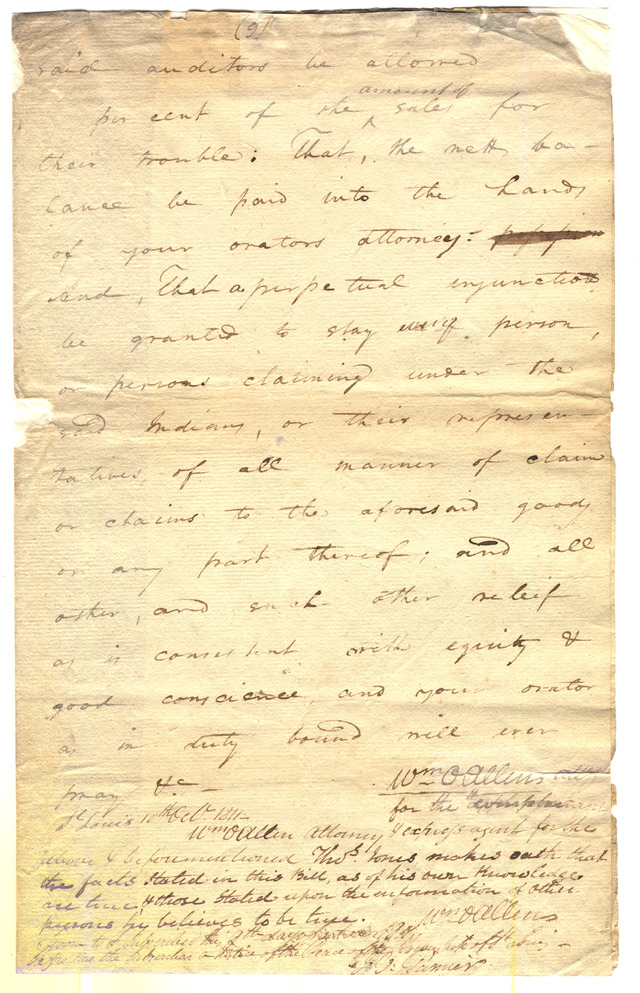 (9)
said auditors be allowed
amount of
per cent of the ^ sales for
their trouble: That, the nett ba-
lance be paid into the hands
of your orators attorney:
And, That a perpetual injunction
be granted to stay person,
or persons claiming under the
said Indians, or their represen-
tatives, of all manner of claim
or claims to the aforesaid goods
or any part thereof; and all
other, and such other releif
as is consistent with equity &
good conscience, and your orator
as in duty bound will ever
pray &c - Wm O Allens atty
for the complainant
St Louis 10th Oct. 1811-
Wm O Allen Attorney & agent for the
above & beforementioned Thos. Jones makes oath that
the facts stated in this Bill, as of his own Knowledge
are true, & those stated upon the information of other
persons he believes to be true. Wm O Allens
Sworn to & subscribed this day of
before me the subscriber a Justice of the Peace of the township of St Louis -